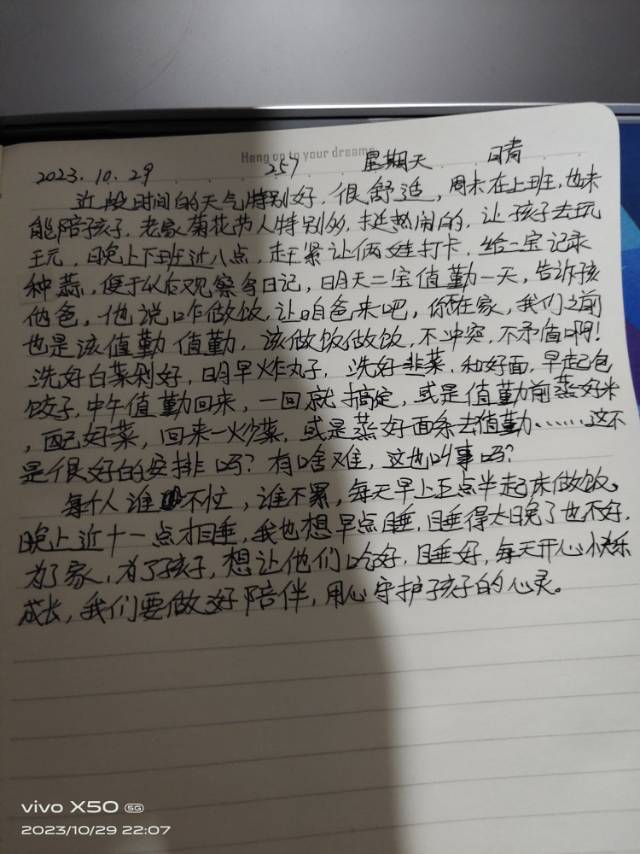 Hang on to your dreams
2023.10.29 257 星期天 晴
近段时间的天气特别好，很舒适，周末在上班，也未
能陪孩子，老家菊花节人特别多，挺热闹的，让孩子去玩
玩，晚上下班近八点，赶紧让俩娃打卡，给二宝记录
种蒜，便于以后观察写日记，明天二宝值勤一天，告诉孩
他爸，他说咋做饭，让咱爸来吧，你在家，我们之前
也是该值勤值勤，该做饭做饭，不冲突，不矛盾啊！
洗好白菜剁好，明早炸丸子，洗好韭菜，和好面，早起包
饺子，中午值勤回来，一回就搞定，或是值勤前蒸好米
，配好菜，回来一炒菜，或是蒸好面条去值勤……这不
是很好的安排吗？有啥难，这也叫事吗？
每个人谁不忙，谁不累，每天早上五点半起床做饭。
晚上近十一点才睡，我也想早点睡，睡得太晚了也不好，
为了家，为了孩子，想让他们吃好，睡好，每天开心快乐
成长，我们要做好陪伴，用心守护孩子的心灵。
vivo X50 5G
2023/10/29 22:07